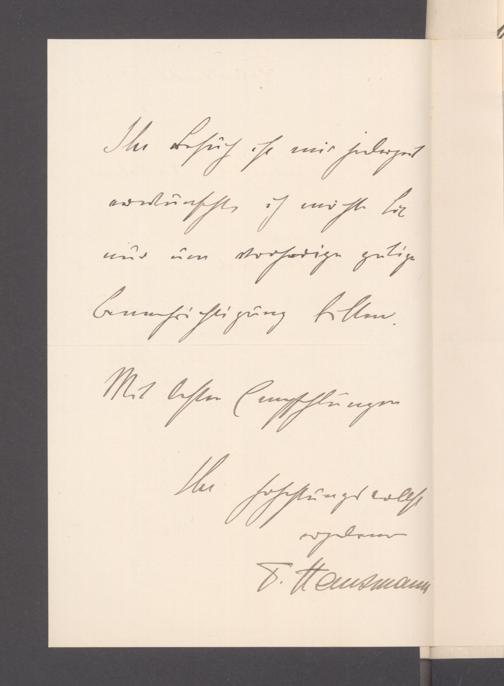 Ihr Besuch ist mir jederzeit
erwünscht, ich möchte Sie
nur um vorherige gütige
Benachrichtigung bitten.
Mit besten Empfehlungen
Ihr hochachtungsvollst
ergebener
F. Hausmann